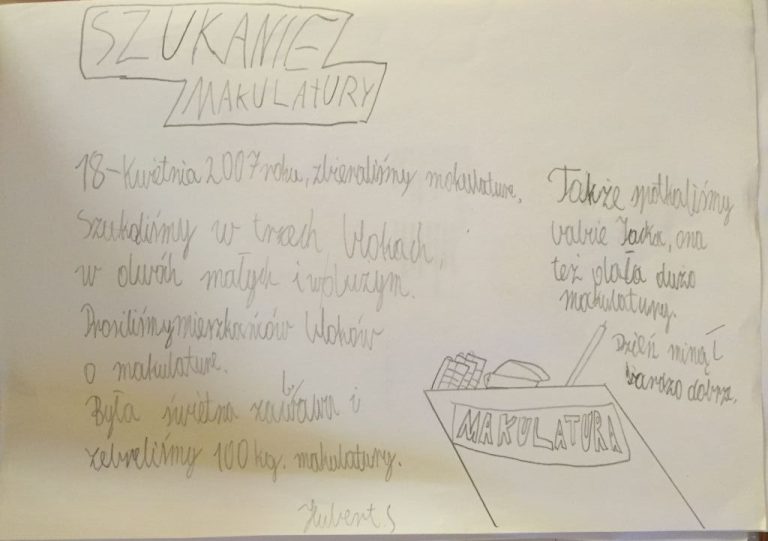 SZUKANIE
MAKULATURY
18-Kwietnia 2007 roku, zbieraliśmy makulature.
Szukaliśmy w trzech blokach,
w dwóch małych i w dużym.
Prosiliśmy mieszkańców bloków
o makulature.
Była świetna zabawa i
zebreliśmy 100 kg. makulatury.
Hubert S
Także spotkaliśmy
babcie Jacka, ona
też dała dużo
makulatury.
Dzień minął
bardzo dobrze.
MAKULATURA